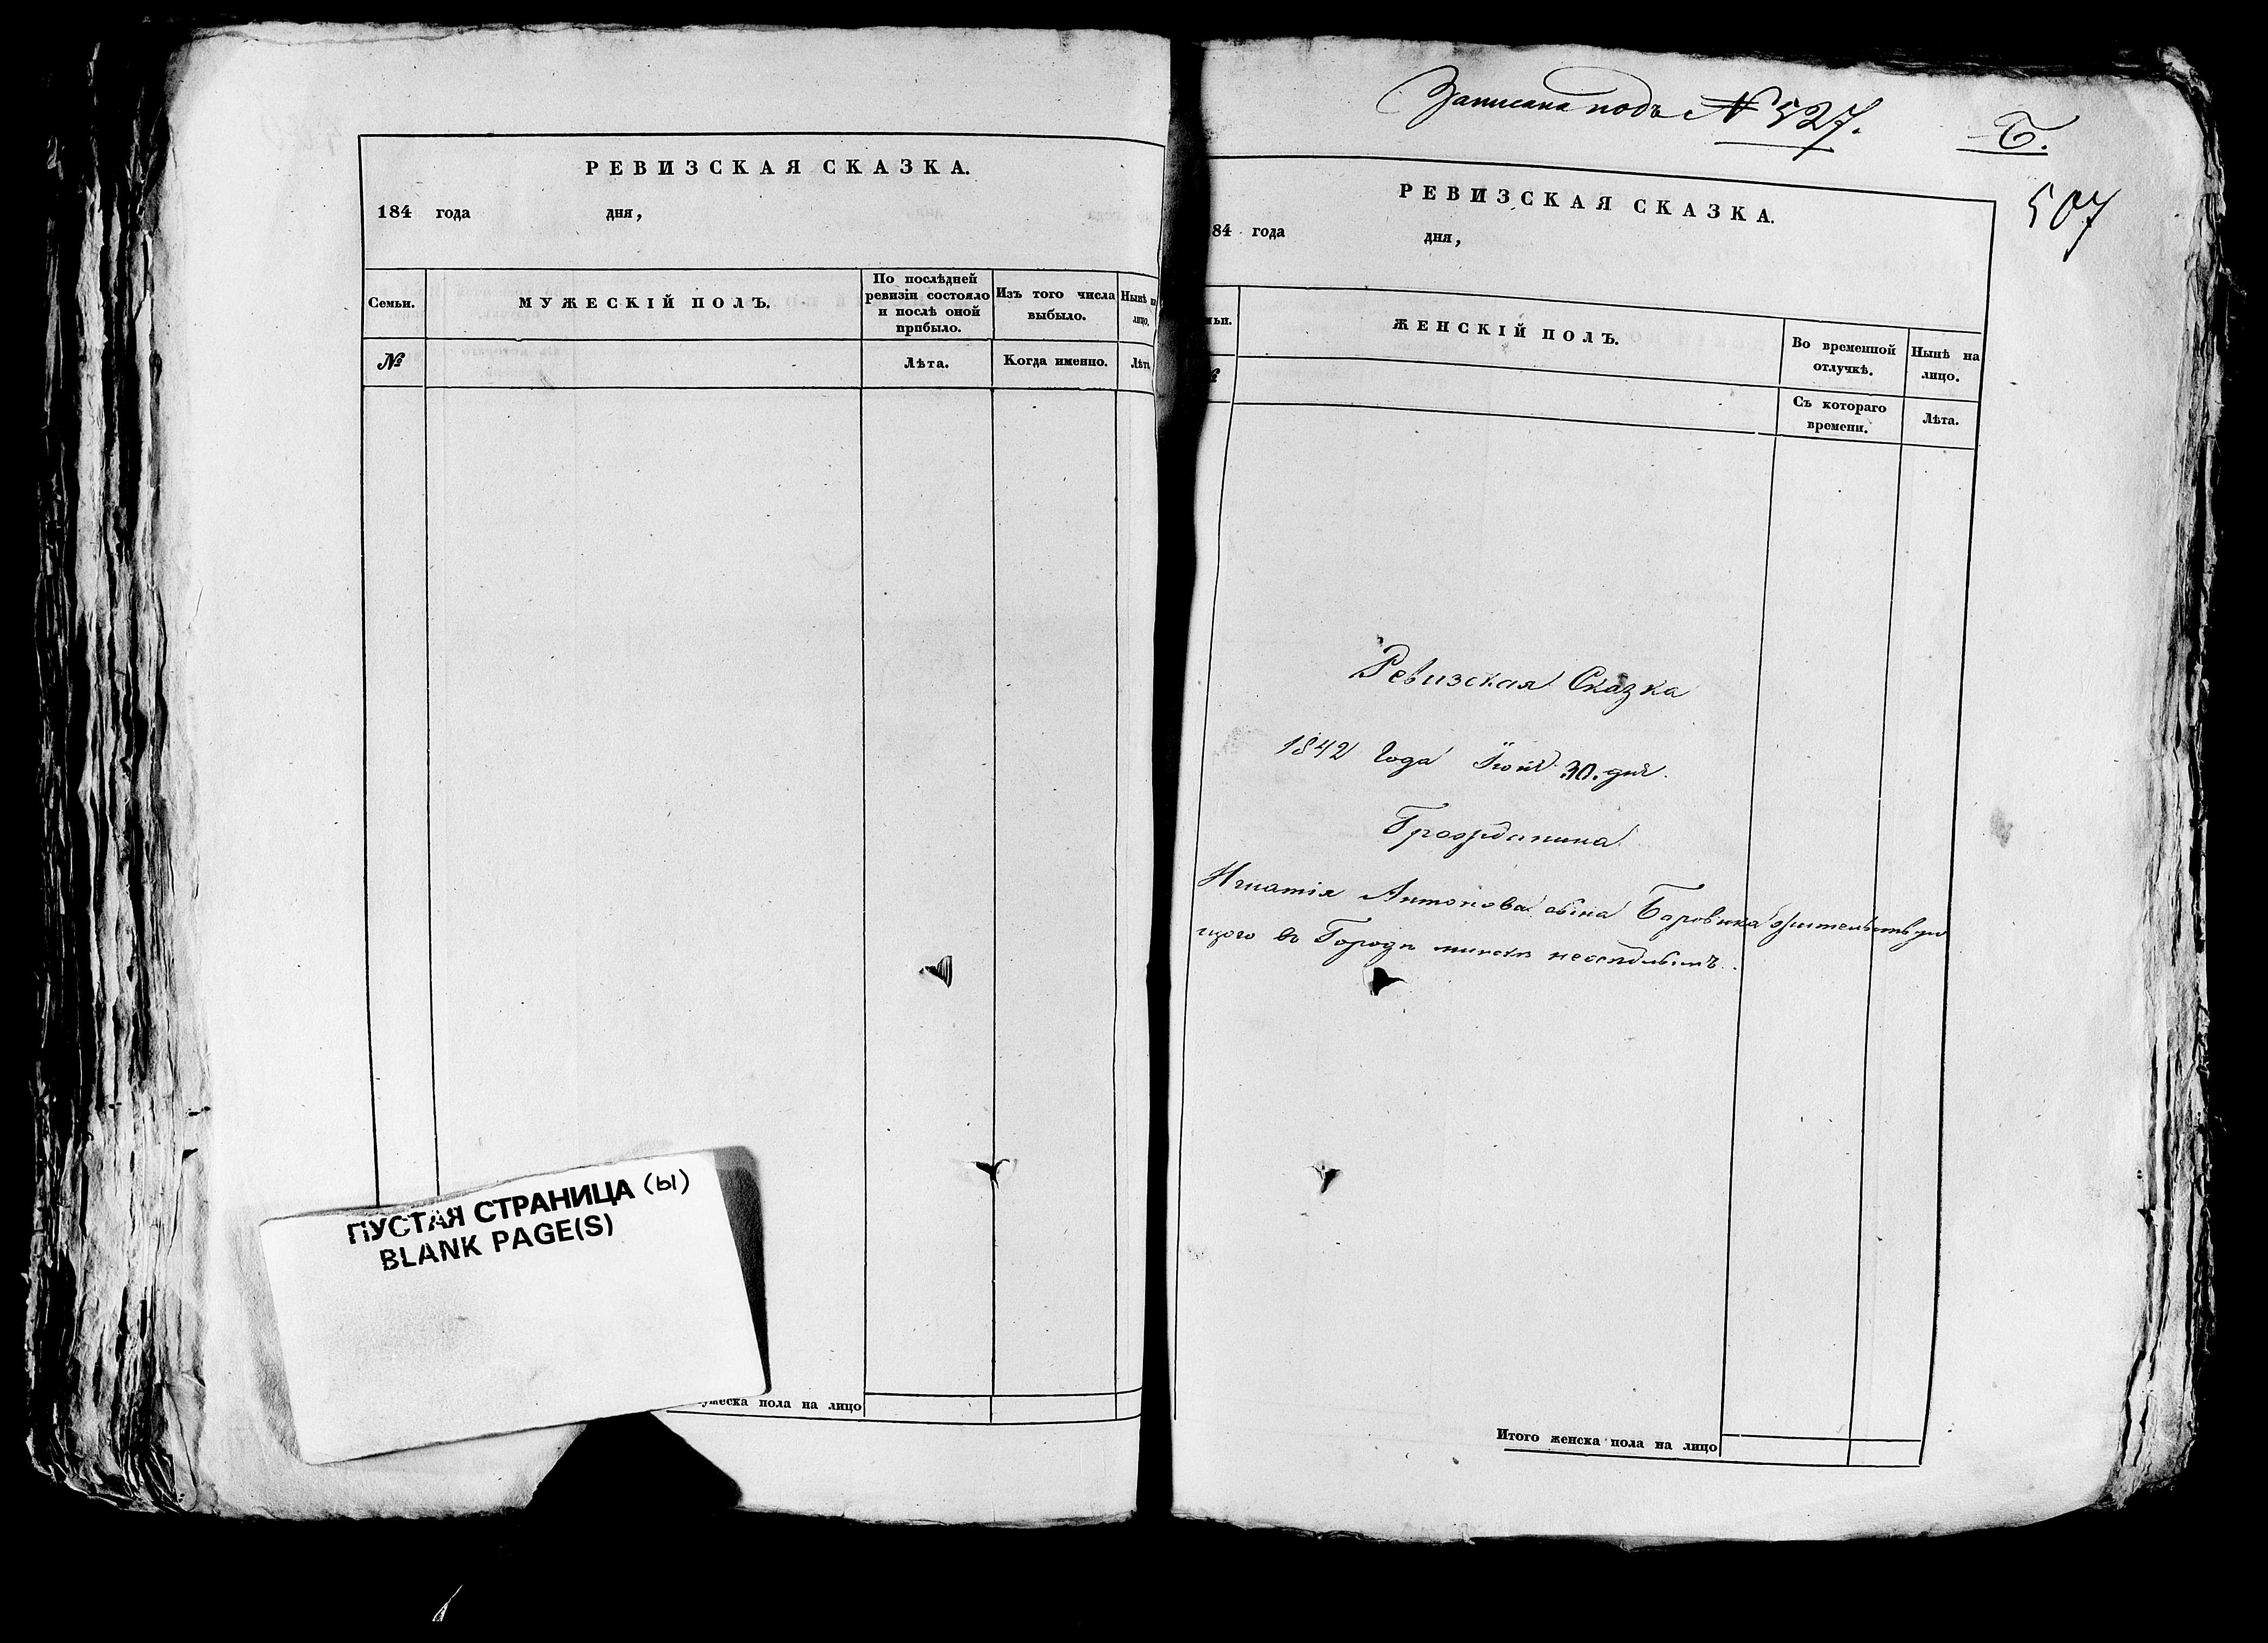 РЕВИЗСКАЯ СКАЗКА.
184 года дня,
Семьи.
МУЖЕСКІЙ ПОЛЪ.
По послѣдней ревизіи состояло и послѣ оной прибыло.
Изъ того числа выбыло.
Нынѣ на лицо.
№
Лѣта.
Когда именно.
Лѣта
ПУСТАЯ СТРАНИЦА (ы)
BLANK PAGE(S)
ужеска пола на лицо
Записана подъ № 527.
Б.
507
РЕВИЗСКАЯ СКАЗКА.
84 года дня,
мьи.
ЖЕНСКІЙ ПОЛЪ.
Во временной отлучкѣ.
Нынѣ на лицо.
Съ котораго времени.
Лѣта.
Ревизская Сказка
1842 Года 30. дня.
Гражданина
Игнатія Антонова сына Боровика жительствую
щого въ Городѣ минскѣ неосѣдлымъ.
Итого женска пола на лицо